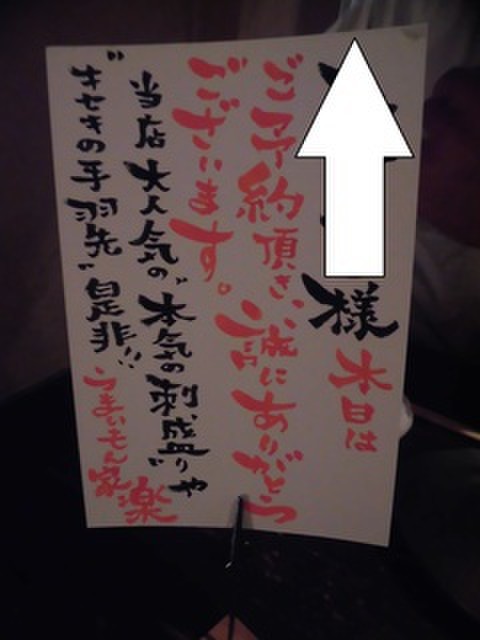 様 本日は
ご予約頂き、誠にありがとう
ございます。
当店大人気の"本気の刺盛り"や
"キセキの手羽先"是非!!
うまいもん家 楽